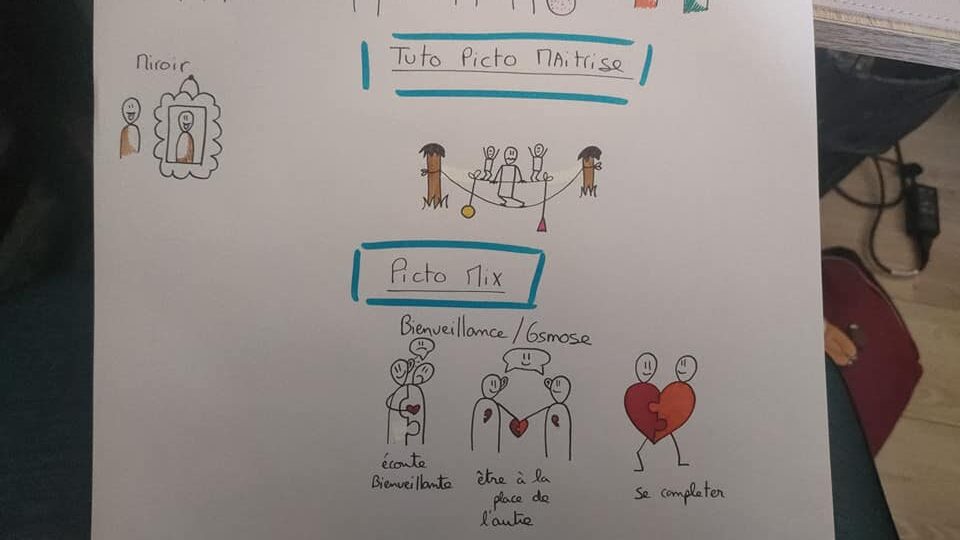 Miroir
Tuto Picto MAitrise
Picto Mix
Bienveillance / Osmose
écoute
Bienveillante
être à la
place de
l'autre
se completer